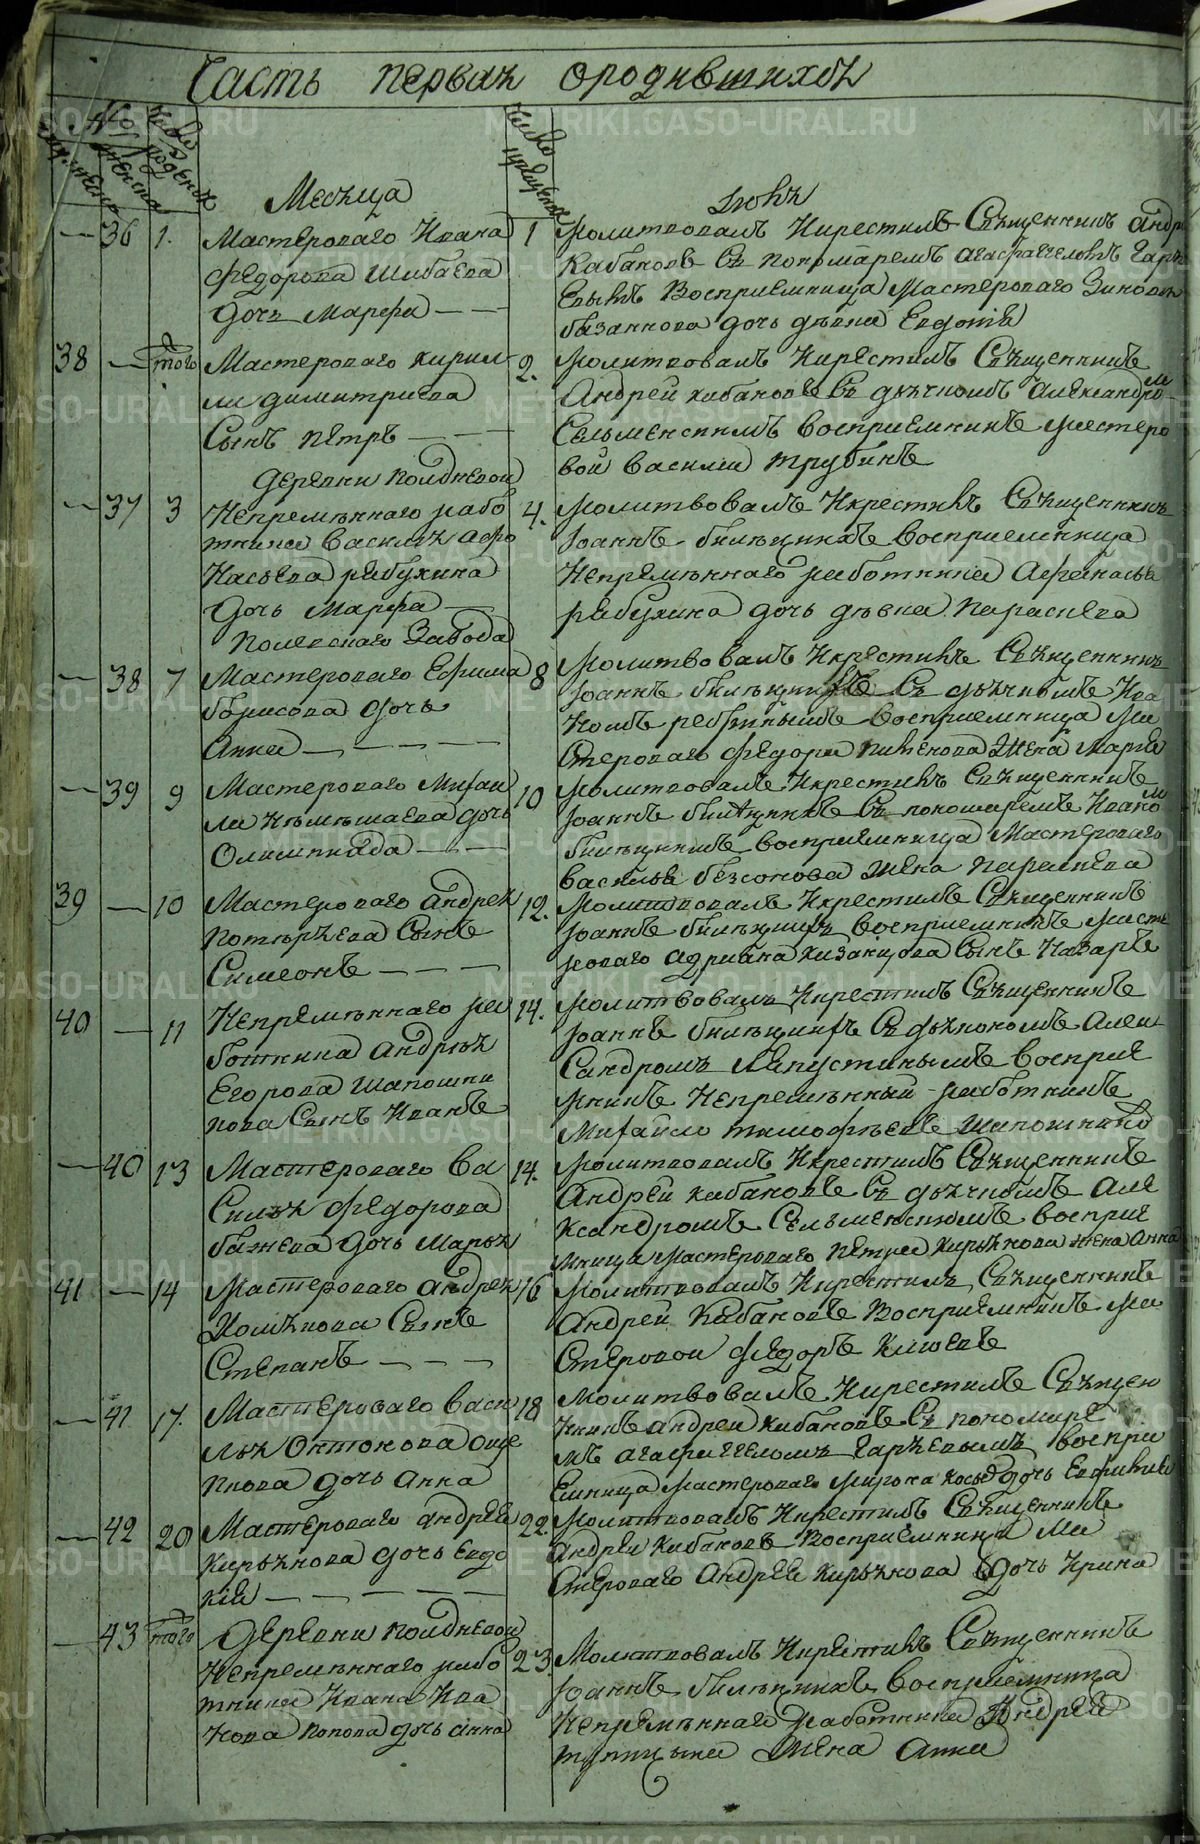 Часть первая ородившихся
Месяца
Июнь
36 1. Мастероваго Ивана
Федорова Шибаева
дочь Марфа
1 Молитвовалъ Икрестилъ Священникъ Андр
Кабаковъ Съ пономаремъ
Восприемница Мастероваго
дочь девка Евдотья
38 того Мастероваго Кирил
ли Димитриева
Сынъ Петръ
2. Молитвовалъ Икрестилъ Священникъ
Андрей Кабаковъ Съ дьячкомъ Александро
мъ
Сельменскимъ восприемникъ мастеро
вой Василий Трубинъ
деревни Полдневой
37 3 Непременнаго рабо
тника Василья Афо
насьева Рябухина
дочь Марфа
4. Молитвовалъ Икрестилъ Священникъ
Иоаннъ восприемница
Непременнаго работника Афанасья
Рябухина дочь девка Параскева
Полевскаго Завода
38 7 Мастероваго Ефима
Борисова дочь
Анна
8 Молитвовалъ Икрестилъ Священникъ
Иоаннъ Съ дьячкомъ Ива
номъ восприемница Ма
стероваго Федора жена Марья
39 9 Мастероваго Михаи
ла дочь
Олимпиада
10 Молитвовалъ Икрестилъ Священникъ
Иоаннъ Съ пономаремъ Ивано
мъ
восприемница Мастероваго
Василья Безсонова жена Параскева
39 10 Мастероваго Андрея
Потеряева Сынъ
Симеонъ
12. Молитвовалъ Икрестилъ Священникъ
Иоаннъ восприемникъ масте
роваго Адриана Казанцова Сынъ Назаръ
40 11 Непременнаго ра
ботника Андрея
Егорова Шапошни
кова Сынъ Иванъ
14. Молитвовалъ Икрестилъ Священникъ
Иоаннъ Съ дьякономъ Алек
сандромъ Лапустинымъ восприе
мникъ Непременный работникъ
Михайло Тимофеевъ Шапошнико
40 13 Мастероваго Ва
силья Федорова
Бажева дочь Марья
14. Молитвовалъ Икрестилъ Священникъ
Андрей Кабаковъ Съ дьячкомъ Але
ксандромъ Сельменскимъ восприе
мница мастероваго Петра Кирьякова жена Анна
41 14 Мастероваго Андрея
Хомякова Сынъ
Степанъ
16 Молитвовалъ Икрестилъ Священникъ
Андрей Кабаковъ Восприемникъ Ма
стеровой Федоръ Клюевъ
41 17. Мастероваго Васи
лья Онтонова Още
пкова дочь Анна
18 Молитвовалъ Икрестилъ Священ
никъ Андрей Кабаковъ Съ пономаре
мъ воспри
емница мастероваго Мирона дочь
42 20 Мастероваго Андрея
Кирьякова дочь Евдо
кия
22 Молитвовалъ Икрестилъ Священникъ
Андрей Кабаковъ Восприемница Ма
стероваго Андрея Кирьякова дочь Ирина
43 того деревни Полдневой
Непременнаго рабо
тника Ивана Ива
нова Попова дочь Анна
23. Молитвовалъ Икрестилъ Священникъ
Иоаннъ восприемница
Непременнаго работника Андрея
жена Анна